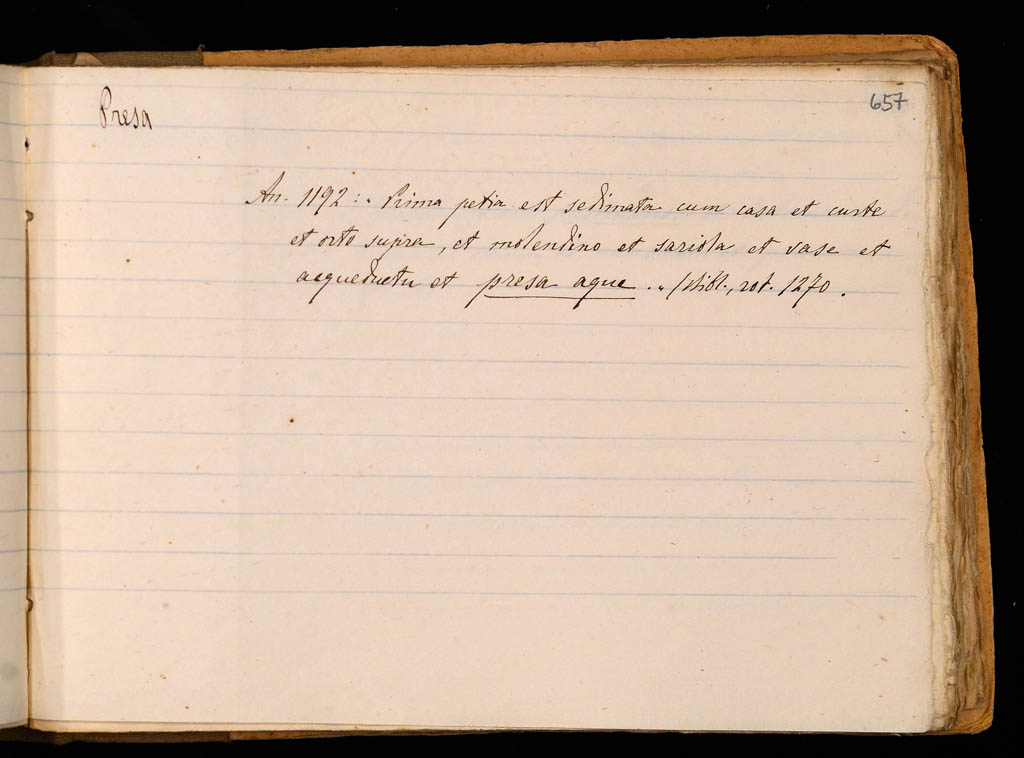 657
Presa
An. 1192 : „ Prima petia est sedimata cum casa et curte
et orto supra, et molendino et sariola et vase et
acqueductu et presa aque . „ / Bibl., rot. 1270 .